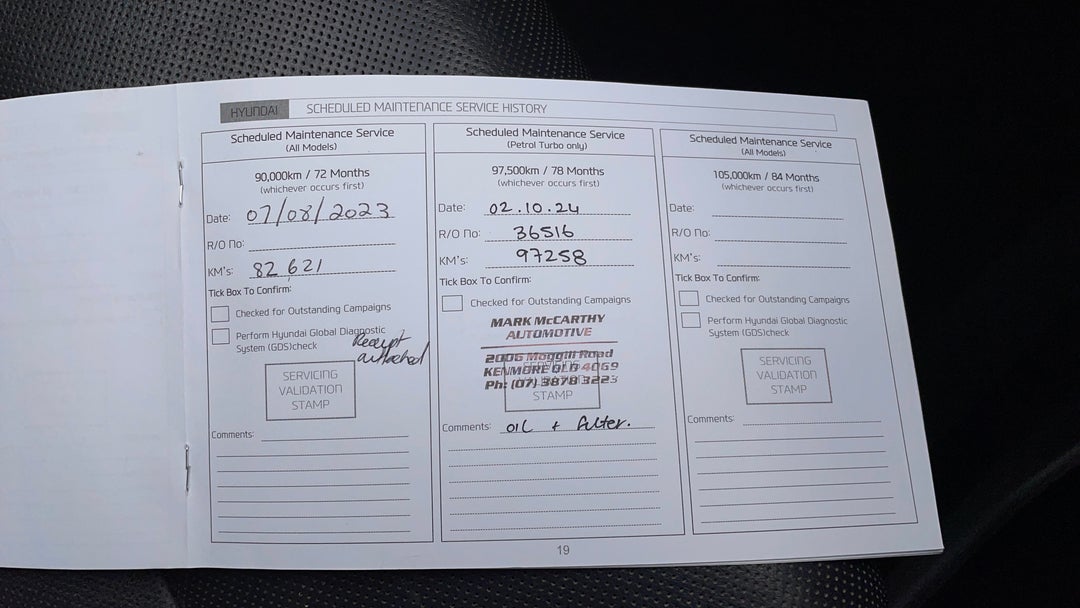 HYUNDAI SCHEDULED MAINTENANCE SERVICE HISTORY
Scheduled Maintenance Service
(All Models)
90,000km / 72 Months
(whichever occurs first)
Date: 07/08/2023
R/O No:
KM's: 82 621
Tick Box To Confirm:
Checked for Outstanding Campaigns
Perform Hyundai Global Diagnostic
System (GDS)check
Receipt
attached
SERVICING
VALIDATION
STAMP
Comments:
Scheduled Maintenance Service
(Petrol Turbo only)
97,500km / 78 Months
(whichever occurs first)
Date: 02.10.24
R/O No: 36516
KM's: 97258
Tick Box To Confirm:
Checked for Outstanding Campaigns
MARK McCARTHY
AUTOMOTIVE
2006 Moggill Road
KENMORE QLD 4069
Ph: (07) 3878 3223
STAMP
Comments: OIL + Filter.
Scheduled Maintenance Service
(All Models)
105,000km / 84 Months
(whichever occurs first)
Date:
R/O No:
KM's:
Tick Box To Confirm:
Checked for Outstanding Campaigns
Perform Hyundai Global Diagnostic
System (GDS)check
SERVICING
VALIDATION
STAMP
Comments:
19